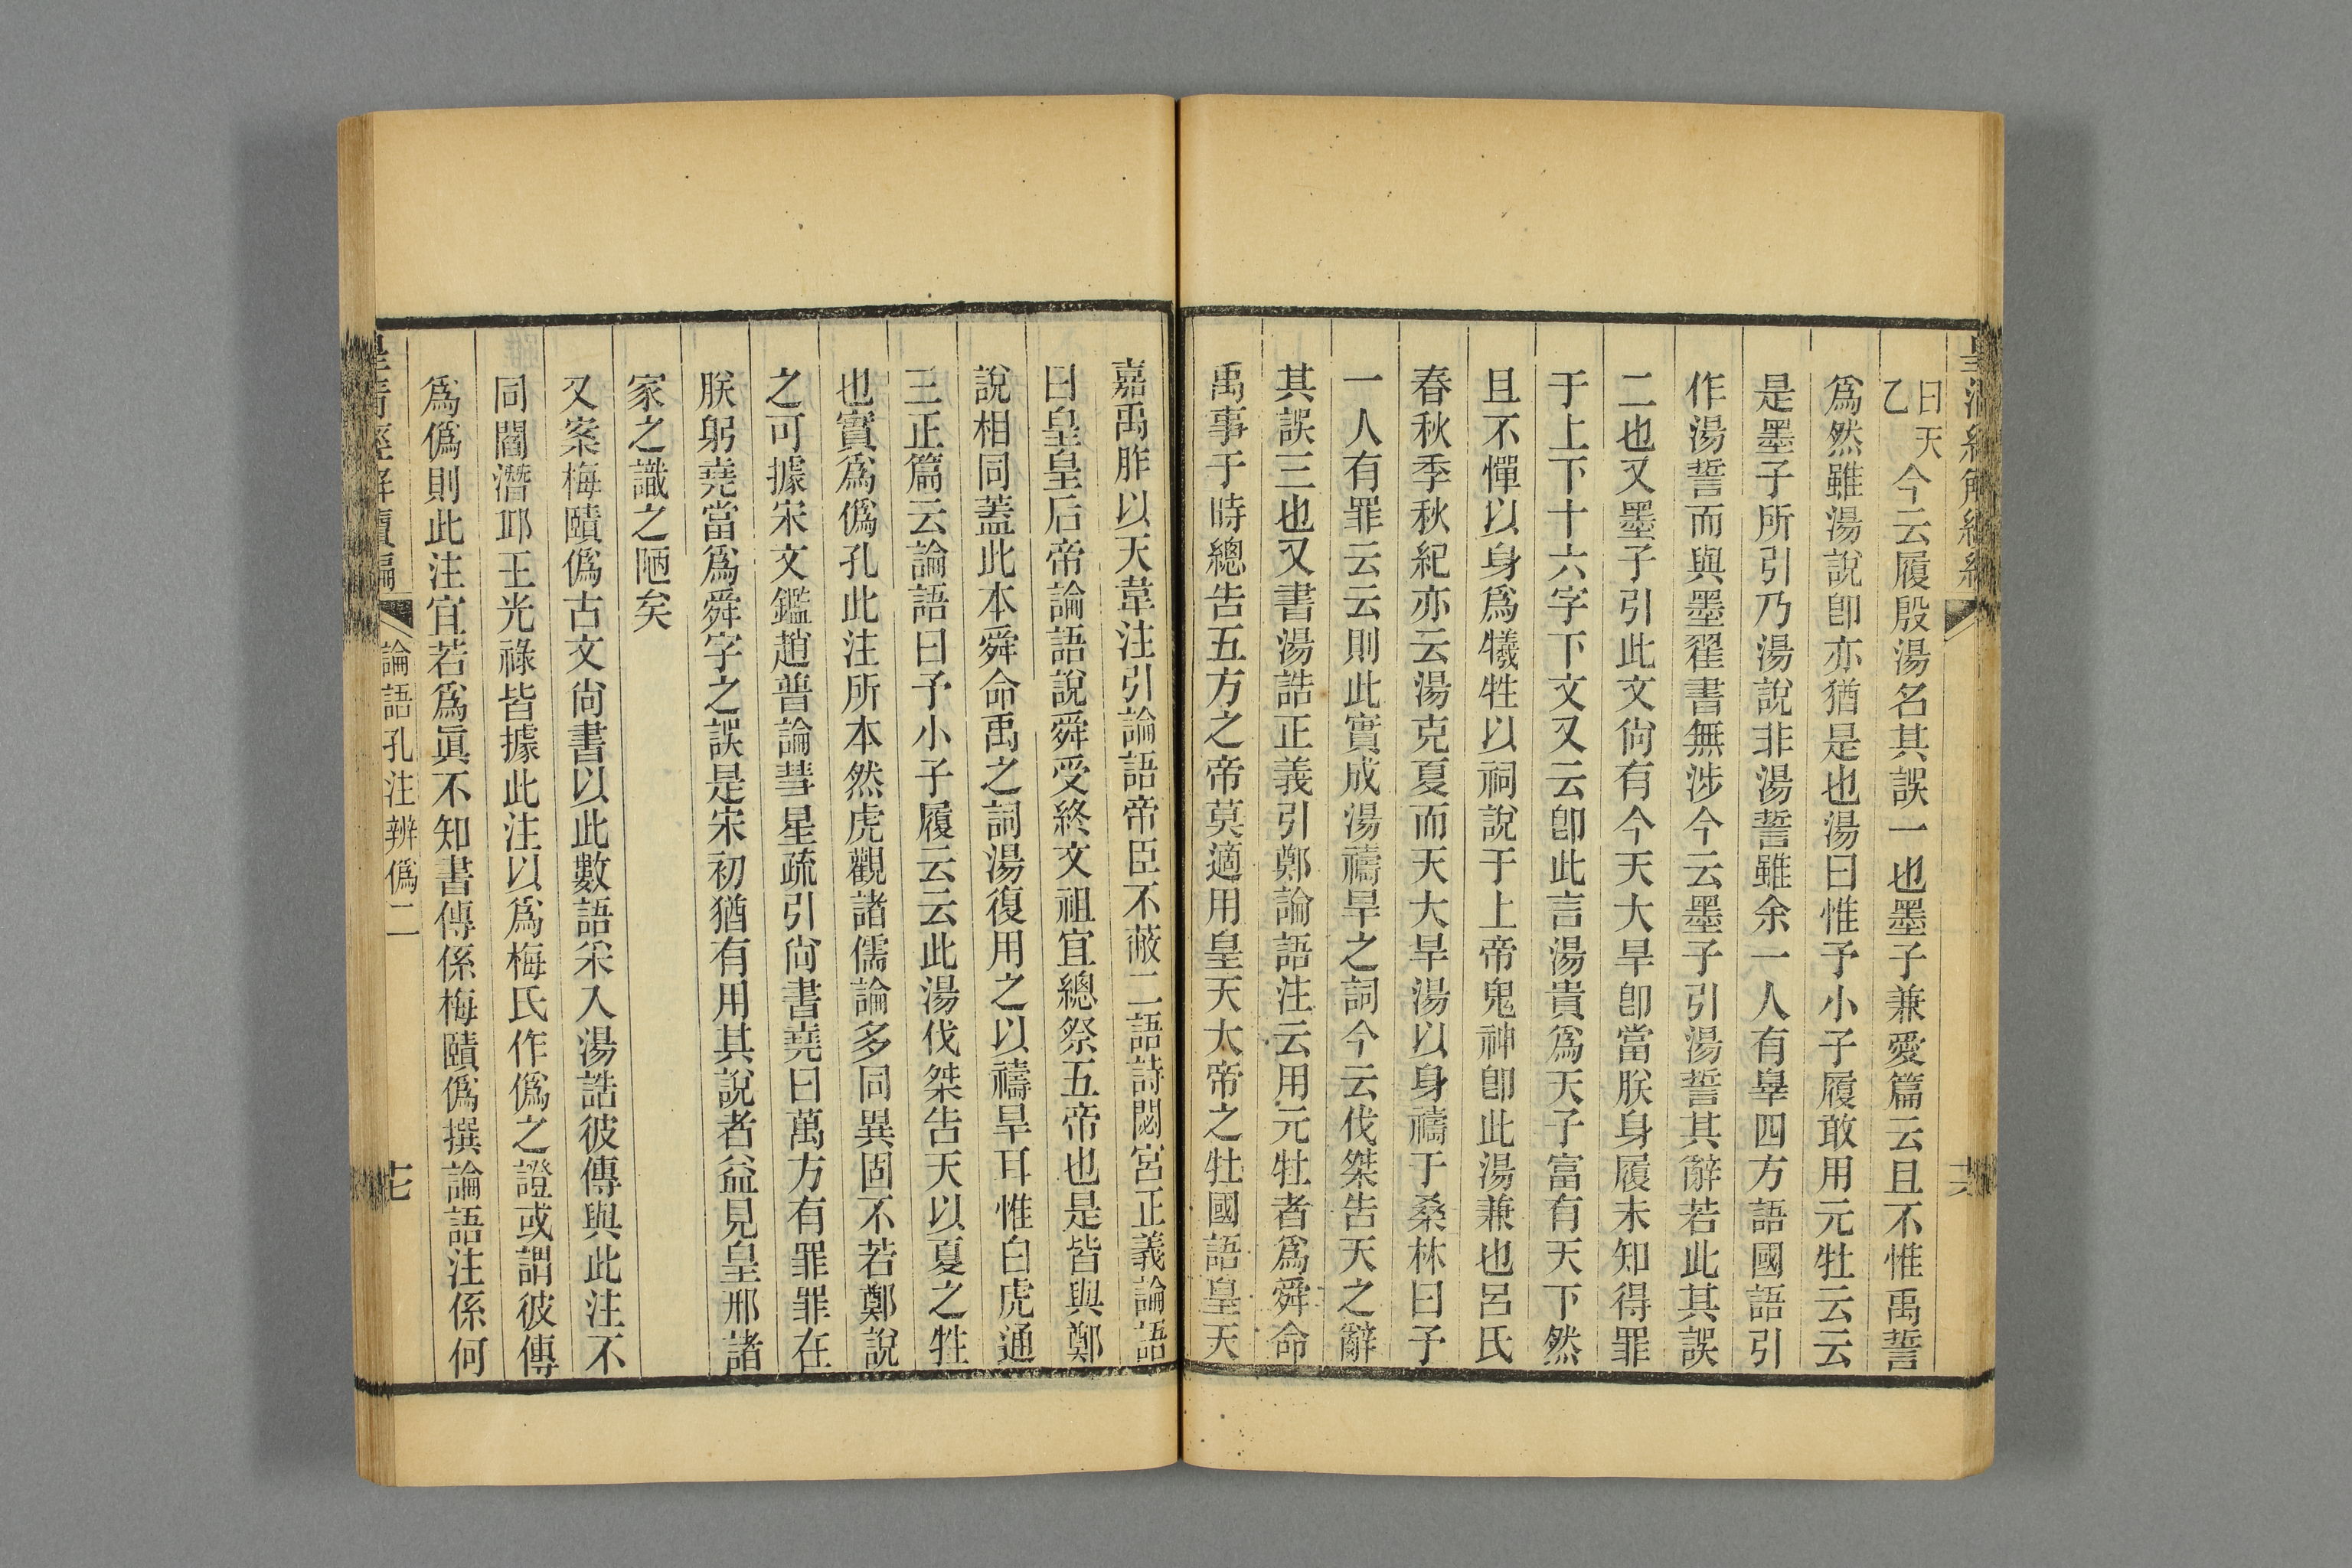 曰天乙今云履殷湯名其誤一也墨子兼愛篇云且不惟禹誓
爲然雖湯說卽亦猶是也湯曰惟予小子履敢用元牡云云
是墨子所引乃湯說非湯誓雖余一人有辠四方語國語引
作湯誓而與墨翟書無涉今云墨子引湯誓其辭若此其誤
二也又墨子引此文尙有今天大旱卽當朕身履未知得罪
于上下十六字下文又云卽此言湯貴爲天子富有天下然
且不憚以身爲犧牲以祠說于上帝鬼神卽此湯兼也呂氏
春秋季秋紀亦云湯克夏而天大旱湯以身禱于桑林曰予
一人有罪云云則此實成湯禱旱之詞今云伐桀告天之辭
其誤三也又書湯誥正義引鄭論語注云用元牡者爲舜命
禹事于時總告五方之帝莫適用皇天大帝之牡國語皇天
嘉禹胙以天下韋注引論語帝臣不蔽二語詩閟宮正義論語
曰皇皇后帝論語說舜受終文祖宜總祭五帝也是皆與鄭
說相同蓋此本舜命禹之詞湯復用之以禱旱耳惟白虎通
三正篇云論語曰予小子履云云此湯伐桀告天以夏之牲
也實爲僞孔此注所本然虎觀諸儒論多同異固不若鄭說
之可據宋文鑑趙普論彗星疏引尙書堯曰萬方有罪罪在
朕躬堯當爲舜字之誤是宋初猶有用其說者益見皇邢諸
家之識之陋矣
又案梅賾僞古文尙書以此數語采入湯誥彼傳與此注不
同閻潛邱王光祿皆據此注以爲梅氏作僞之證或謂彼傳
爲僞則此注宜若爲眞不知書傳係梅賾僞撰論語注係何
皇清經解續編
論語孔注辨僞二
七